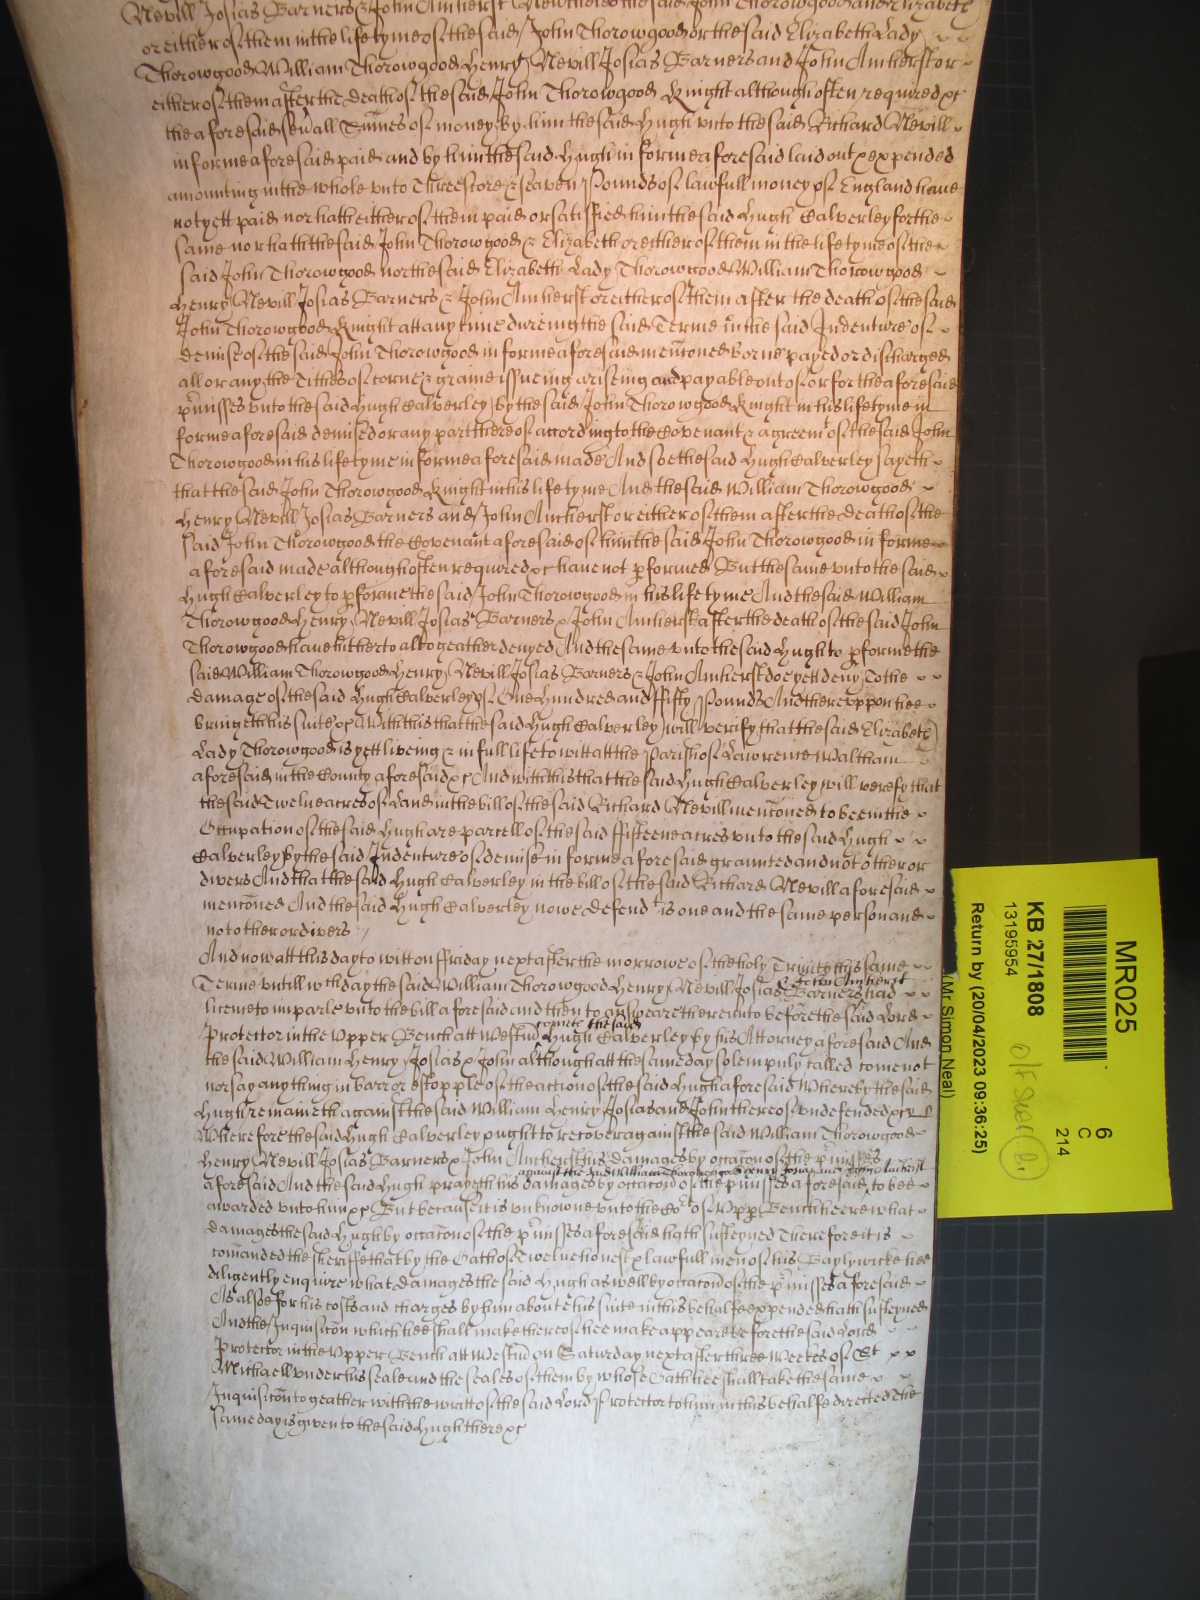 Nevill Josias Barners & John Amherst the said John Thorowgood and Elizabeth
or either of them in the life tyme of the said John Thorowgood or the said Elizabeth Lady
Thorowgood William Thorowgood Henry Nevill Josias Barners and John Amherst or
either of them after the death of the said John Thorowgood Knight although often required &c
the aforesaid seũall Sũmes of money by him the said Hugh vnto the said Richard Nevill
in forme aforesaid paid and by him the said Hugh in forme aforesaid laid out & expended
amounting in the whole vnto Threescore & seaven Pounds of lawfull money of England have
not yett paid nor hath either of them paid or satisfied him the said Hugh Calverley for the
same nor hath the said John Thorowgood & Elizabeth or either of them in the life tyme of the
said John Thorowgood nor the said Elizabeth Lady Thorowgood William Thorowgood
Henry Nevill Josias Barners & John Amherst or either of them after the death of the said
John Thorowgood Knight att any time dureing the said Terme in the said Indenture of
demise of the said John Thorowgood in forme aforesaid menc̃oned borne payed or discharged
all or any the Tithes of corne & graine issueing ariseing and payable out of or for the aforesaid
p̃misses vnto the said Hugh Calverley by the said John Thorowgood Knight in his life tyme in
forme aforesaid demised or any part thereof according to the Covenant & agreemt of the said John
Thorowgood in his life tyme in forme aforesaid made And soe the said Hugh Calverley sayeth
that the said John Thorowgood Knight in his life tyme And the said William Thorowgood
Henry Nevill Josias Barners and John Amherst or either of them after the death of the
said John Thorowgood the Covenant aforesaid of him the said John Thorowgood in forme
aforesaid made although often required &c have not pformed But the same vnto the said
Hugh Calverley to pforme the said John Thorowgood in his life tyme And the said William
Thorowgood Henry Nevill Josias Barners & John Amherst after the death of the said John
Thorowgood have hitherto altogeather denyed And the same vnto the said Hugh to pforme the
said William Thorowgood Henry Nevill Josias Barners & John Amherst doe yett deny To the
damage of the said Hugh Calverley of One Hundred and ffifty Pounds And therevppon hee
bringeth his suite &c With this that the said Hugh Calverley will verify that the said Elizabeth
Lady Thorowgood is yett liveing & in full life to witt att the Parish of Lawrence Waltham
aforesaid in the County aforesaid &c And with this that the said Hugh Calverley will verefy that
the said Twelve acres of Land in the bill of the said Richard Nevill menc̃oned to bee in the
Occupation of the said Hugh are parcell of the said ffifteene acres vnto the said Hugh
Calverley by the said Indenture of demise in forme aforesaid graunted and not other or
divers And that the said Hugh Calverley in the bill of the said Richard Nevill aforesaid
menc̃oned And the said Hugh Calverley nowe defendt is one and the same person and
not other or divers
And now att this day to witt on ffriday next after the morrowe of the holy Trinity this same
Terme vntill wch day the said William Thorowgood Henry Nevill Josias Barners & John Amherst had
licence to imparle vnto the bill aforesaid and then to answeare therevnto before the said Lord
Protector in the Vpper Bench att Westm̃ cometh the said Hugh Calverley by his Attorney aforesaid And
the said William Henry Josias & John although att the same day solempnly called come not
nor say any thing in barr or estopple of the action of the said Hugh aforesaid Whereby the said
Hugh remaineth against the said William Henry Josias and John thereof vndefended &c
Wherefore the said Hugh Calverley ought to recover against the said William Thorowgood
Henry Nevill Josias Barners & John Amherst his damages by occac̃on of the p̃misses
aforesaid And the said Hugh prayeth his damages by occac̃on of the p̃misses aforesaid against the said William Thorowgood Henry Josias and John Amherst to bee
awarded vnto him &c But because it is vnknowne vnto the Cort of Vpp Bench heere what
damages the said Hugh by occac̃on of the p̃misses aforesaid hath susteyned Therefore it is
com̃anded the sheriffe that by the Oath of Twelve honest & lawfull men of his Baylywicke hee
diligently enquire what damages the said Hugh as well by occac̃on of the p̃misses aforesaid
As alsoe for his costs and charges by him about his suite in this behalfe expended hath susteyned
And the Inquisic̃on which hee shall make thereof hee make appeare before the said Lord
Protector in the Vpper Bench att Westm̃ on Saturday next after three Weekes of St
Michaell vnder his seale and the seales of them by whose Oath hee shall take the same
Inquisic̃on togeather with the writt of the said Lord Protector to him in this behalfe directed The
same day is given to the said Hugh there &c
MR025
6
C
214
KB 27/1808
13195954
Return by (20/04/2023 09:36:25)
(Mr Simon Neal)